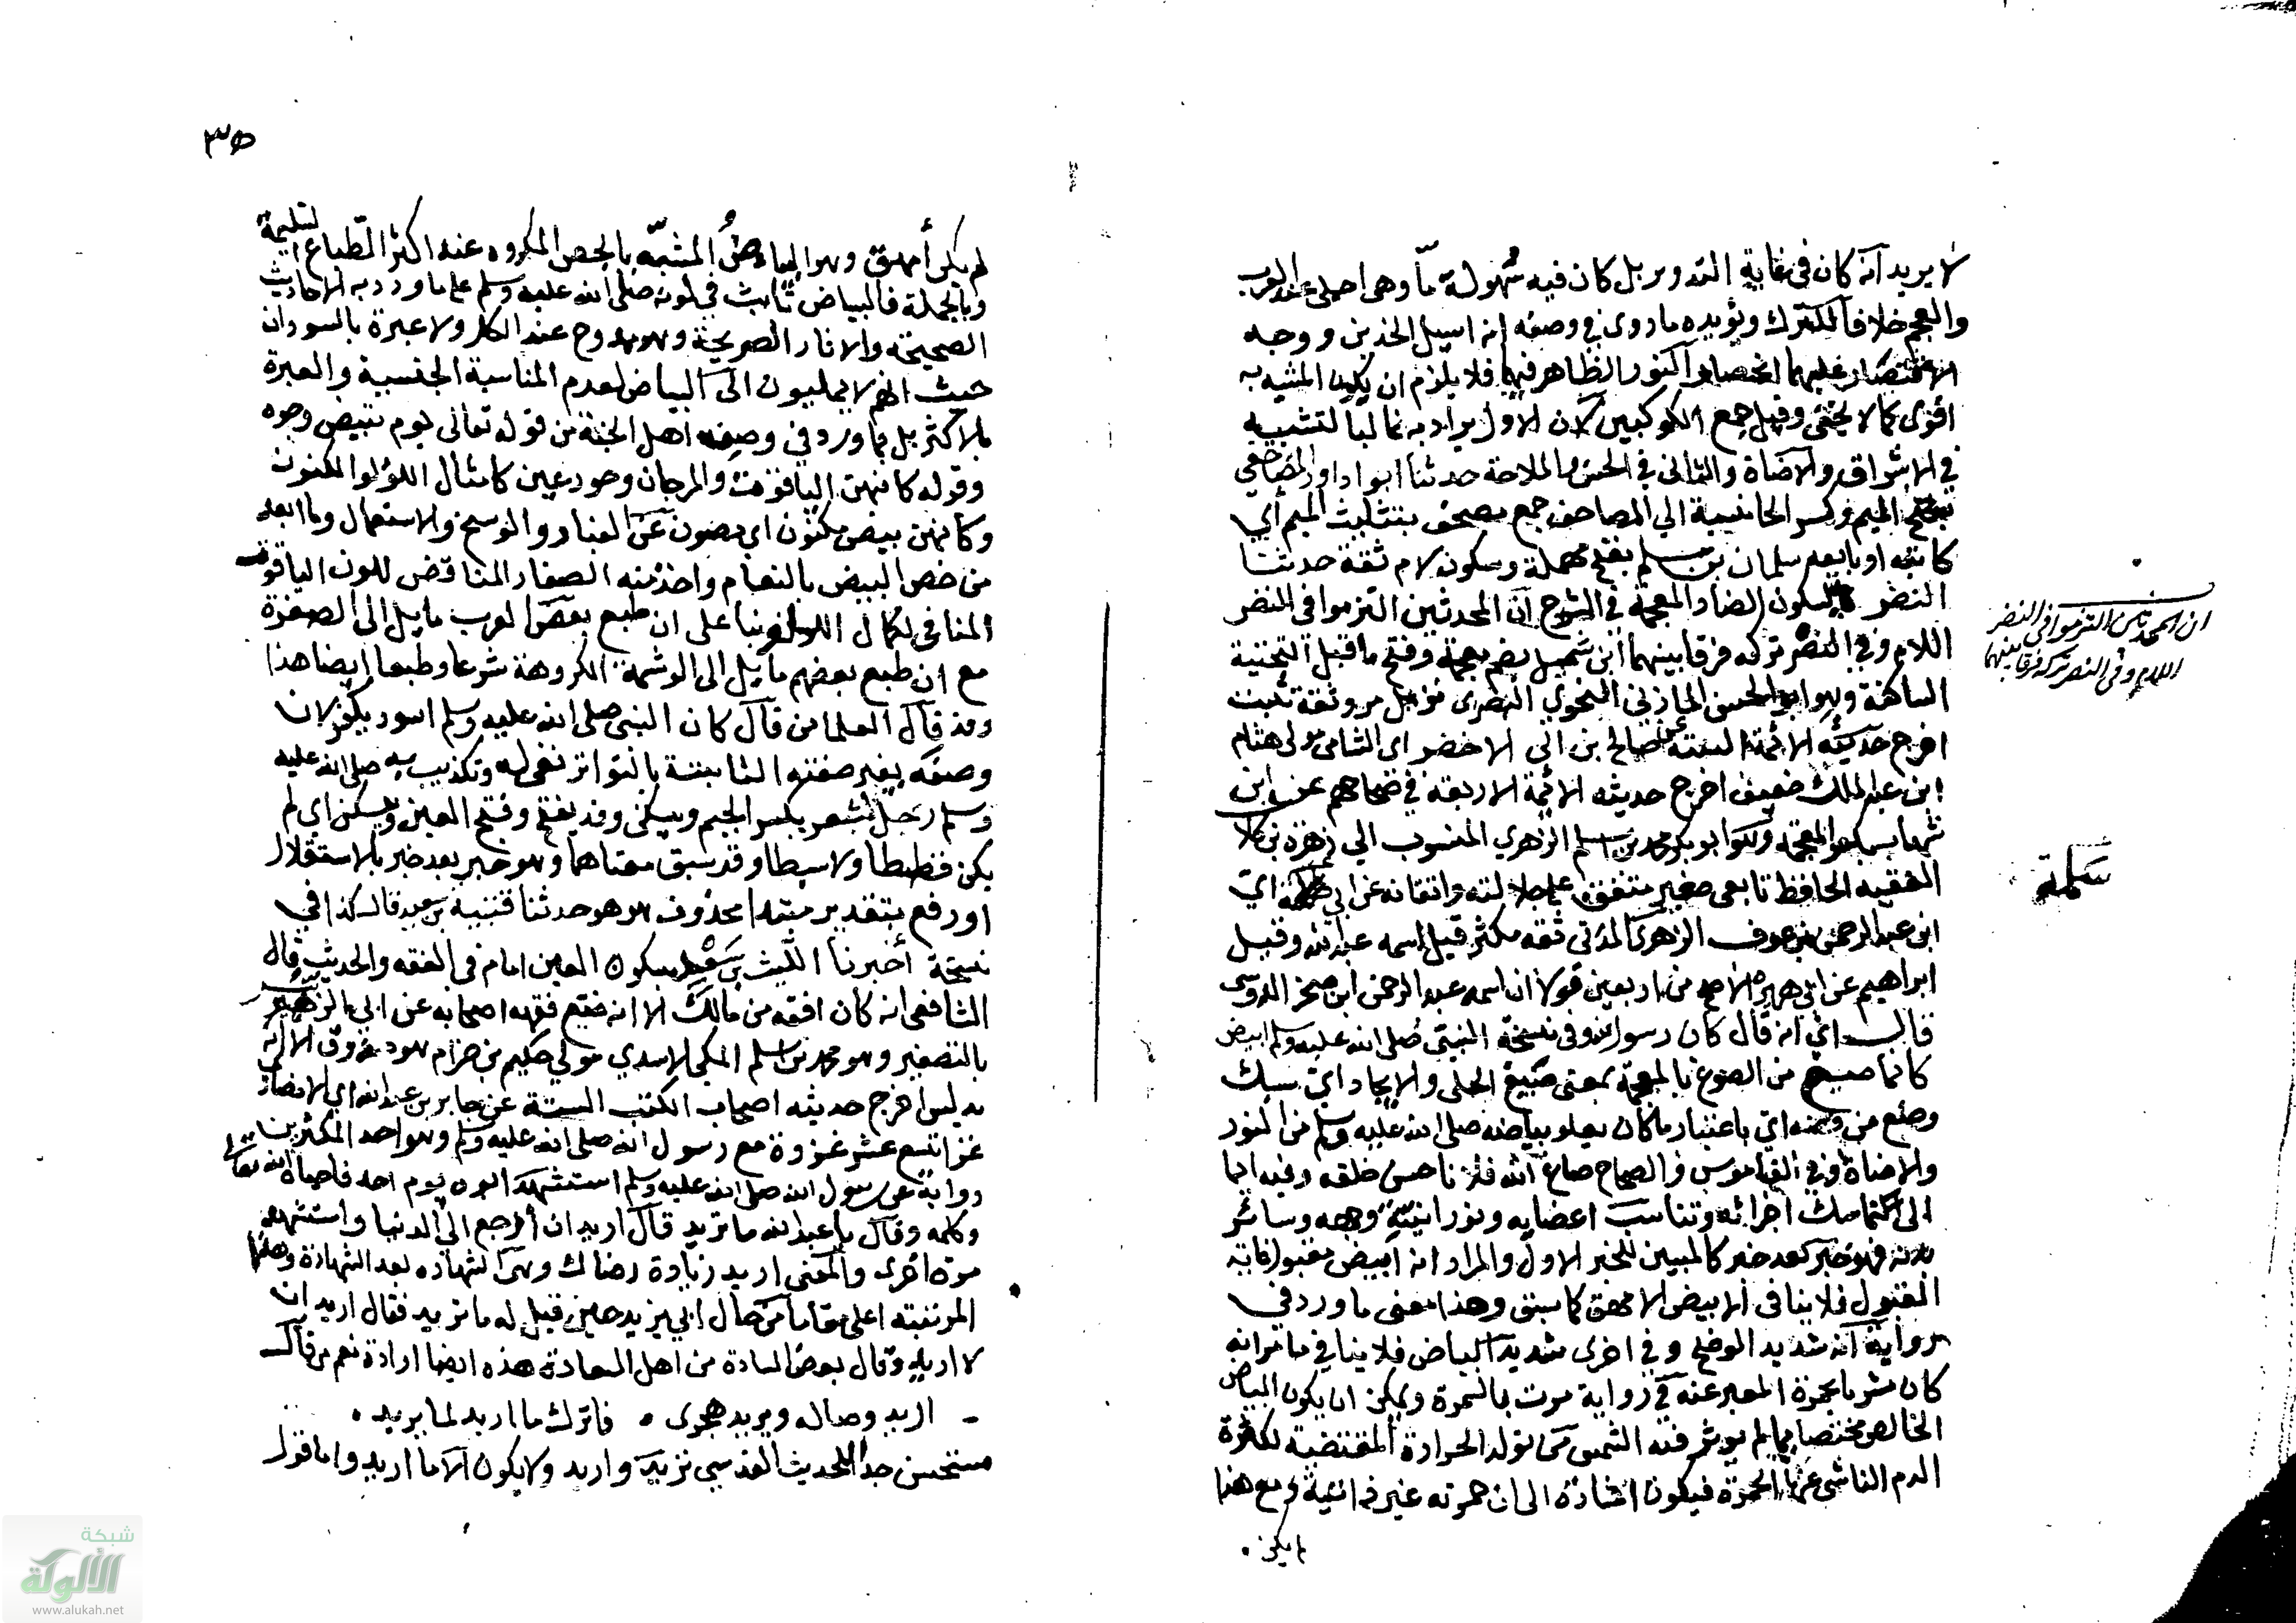 لا يريد أنه كان في غاية التدوير بل كان فيه سهولة مّا وهي احلى عند العرب
والعجم خلافا للترك ويؤيده ما روى في وصفه انه اسيل الخدين ووجه
الاقتصار عليهما اختصار النور الظاهر فيهما فلا يلزم ان يكون المشبه به
اقوى كما لا يخفى وقيل جمع الكوكبين لان الاول يراد به غالبا التشبيه
في الاشراق والاضاة والثاني في الحسن والملاحة حدثنا ابو داود المصاحفي
بفتح الميم وكسر الحا نسبة الي المصاحف جمع مصحف بتثليث الميم أي
كاتبه او بايعه سلمان بن سلم بفتح مهملة وسكون لام ثقة حدثنا
النضر بسكون الضاد المعجمة في الشرح أن المحدثين التزموا في النضر
اللام وفي النصر تركه فرقا بينهما ابن شميل بضم معجمة وفتح ما قبل التحتية
الساكنة وهو ابو الحسن المازني النحوي البصرى نزيل مرو ثقة ثبت
اخرج حديثه الائمة الستة عن صالح بن ابي الاخضر اى الشامى مولى هشام
ابن عبد الملك ضعيف اخرج حديثه الائمة الاربعة في صحاحهم عن ابن
شهاب بكسر المعجمة وهو ابو بكر محمد بن مسلم الزهري المنسوب الي زهرة بن كلا
الفقيه الحافظ تابعى صغير متفق على جلالته واتقانه عن ابي سلمة اي
ابن عبد الرحمن بن عوف الزهرى المدني ثقة مكثر قيل اسمه عبد الله وقيل
ابراهيم عن ابي هريرة الاصح من اربعين قولا ان اسمه عبد الرحمن ابن صخر الدوسى
قال اي انه قال كان رسول الله وفي نسخة النبي صلى الله عليه وسلم ابيض
كانما صيغ من الصوغ بالمعجمة بمعنى صنع الحلى والايجاد اي سبك
وصنع من فضة اي باعتبار ما كان يعلو بياضه صلى الله عليه وسلم من النور
والاضاة وفي القاموس والصحاح صاغ الله فلانا حسن خلقه وفيه ايما
الى تماسك اجزائه وتناسب اعضايه ونورانية وجهه وسائر
بدنه فهو خبر بعد خبر كالمبين للخبر الاول والمراد انه ابيض مقبول غاية
القبول فلا ينافى الابيض الامهق كما سبق وهذا معنى ما ورد في
رواية انه شديد الوضح وفي اخرى شديد البياض فلا ينافي ما مر انه
كان مشربا بحمرة المعبر عنه في رواية مرت بالسمرة ويمكن ان يكون البياض
الخالص مختصا بما لم يوثر فيه الشمس من تولد الحرارة المقتضية لكثرة
الدم الناشي عنها الحمرة فيكون اشارة الى ان حمرته غير ذاتية ومع هذا
لم يكن
ان المحدثين التزموا في النضر
اللام وفى النصر تركه فرقا بينهما
سلمة
٣٥
لم يكن أمهق وهو البياض المشبّه بالجص المكروه عند اكثر الطباع السليمة
وبالجملة فالبياض ثابت في لونه صلى الله عليه وسلم على ما وردت به الاحاديث
الصحيحة والاثار الصريحة وهو ممدوح عند الكل ولا عبرة بالسودان
حيث انهم لا يميلون الى البياض لعدم المناسبة الجنسية والعبرة
بالاكثر بل بما ورد في وصف اهل الجنة من قوله تعالى يوم تبيض وجوه
وقوله كانهن الياقوت والمرجان وحور عين كامثال اللؤلؤ المكنون
وكانهن بيض مكنون اي مصون عن الغبار والوسخ والاستعمال وما ابعد
من خص البيض بالنعام واخذ منه الصفار المناقض للون الياقوت
المنافى لكمال اللؤلؤ بنا على ان طبع بعض العرب مايل الى الصفرة
مع ان طبع بعضهم مايل الى الوشمة المكروهة شرعا وطبعا ايضا هذا
وقد قال العلما من قال كان النبي صلى الله عليه وسلم اسود يكفر لان
وصفه بغير صفته الثابتة بالتواتر نفي له وتكذيب به صلى الله عليه
وسلم رجل الشعر بكسر الجيم ويسكن وقد يفتح وفتح العين ويسكن اي لم
يكن قططا ولا سبطا وقد سبق معناهما وهو خبر بعد خبر بالاستقلال
او رفع بتقدير مبتدا محذوف هو هو حدثنا قتيبة بن سعيد قال كذا في
نسخة أخبرنا الليث بن سعد بسكون العين امام في الفقه والحديث قال
الشافعي انه كان افقه من مالك الا انه ضيع فقهه اصحابه عن ابي الزبير
بالتصغير وهو محمد بن مسلم المكي الاسدي مولي حكيم بن حزام صدوق الا انه
يدلس اخرج حديثه اصحاب الكتب الستة عن جابر بن عبد الله اي الانصاري
غزا تسع عشر غزوة مع رسول الله صلى الله عليه وسلم وهو احد المكثرين
رواية عن رسول الله صلى الله عليه وسلم استشهد ابوه يوم احد فاحياه الله تعالى
وكلمه وقال يا عبد الله ما تريد قال اريد ان أرجع الى الدنيا واستشهد
مرة اخرى والمعنى اريد زيادة رضاك وهى الشهادة بعد الشهادة وهذه
المرتبة اعلى مقاما من حال ابي يزيد حين قيل له ما تريد فقال اريد ان
لا اريد وقال بعض السادة من اهل السعادة هذه ايضا ارادة نعم من قال
اريد وصاله ويريد هجرى • فاترك ما اريد لما يريد •
مستحسن جدا للحديث القدسي تريد واريد ولا يكون الا ما اريد واما قول
شبكة
الألوكة
www.alukah.net